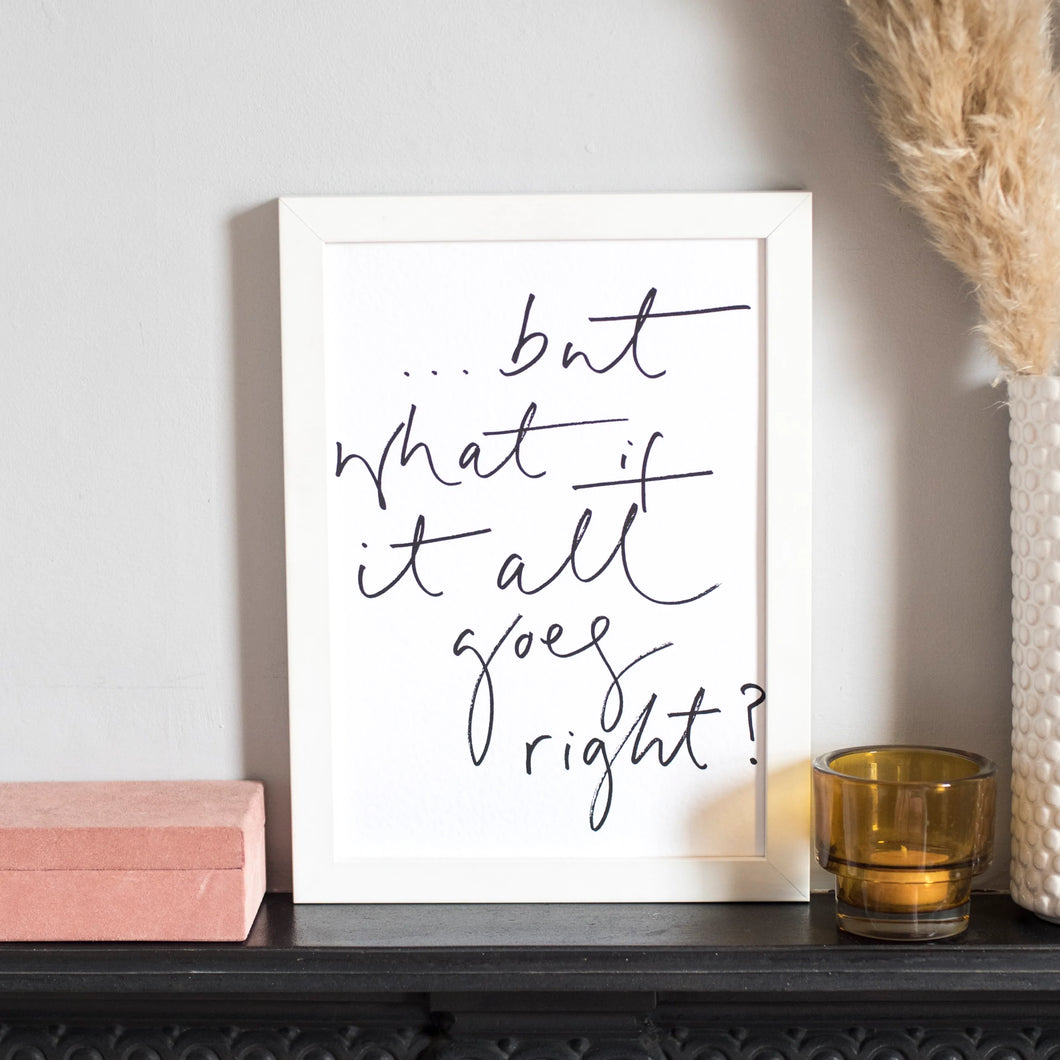 ...but
what if
it all
goes
right?